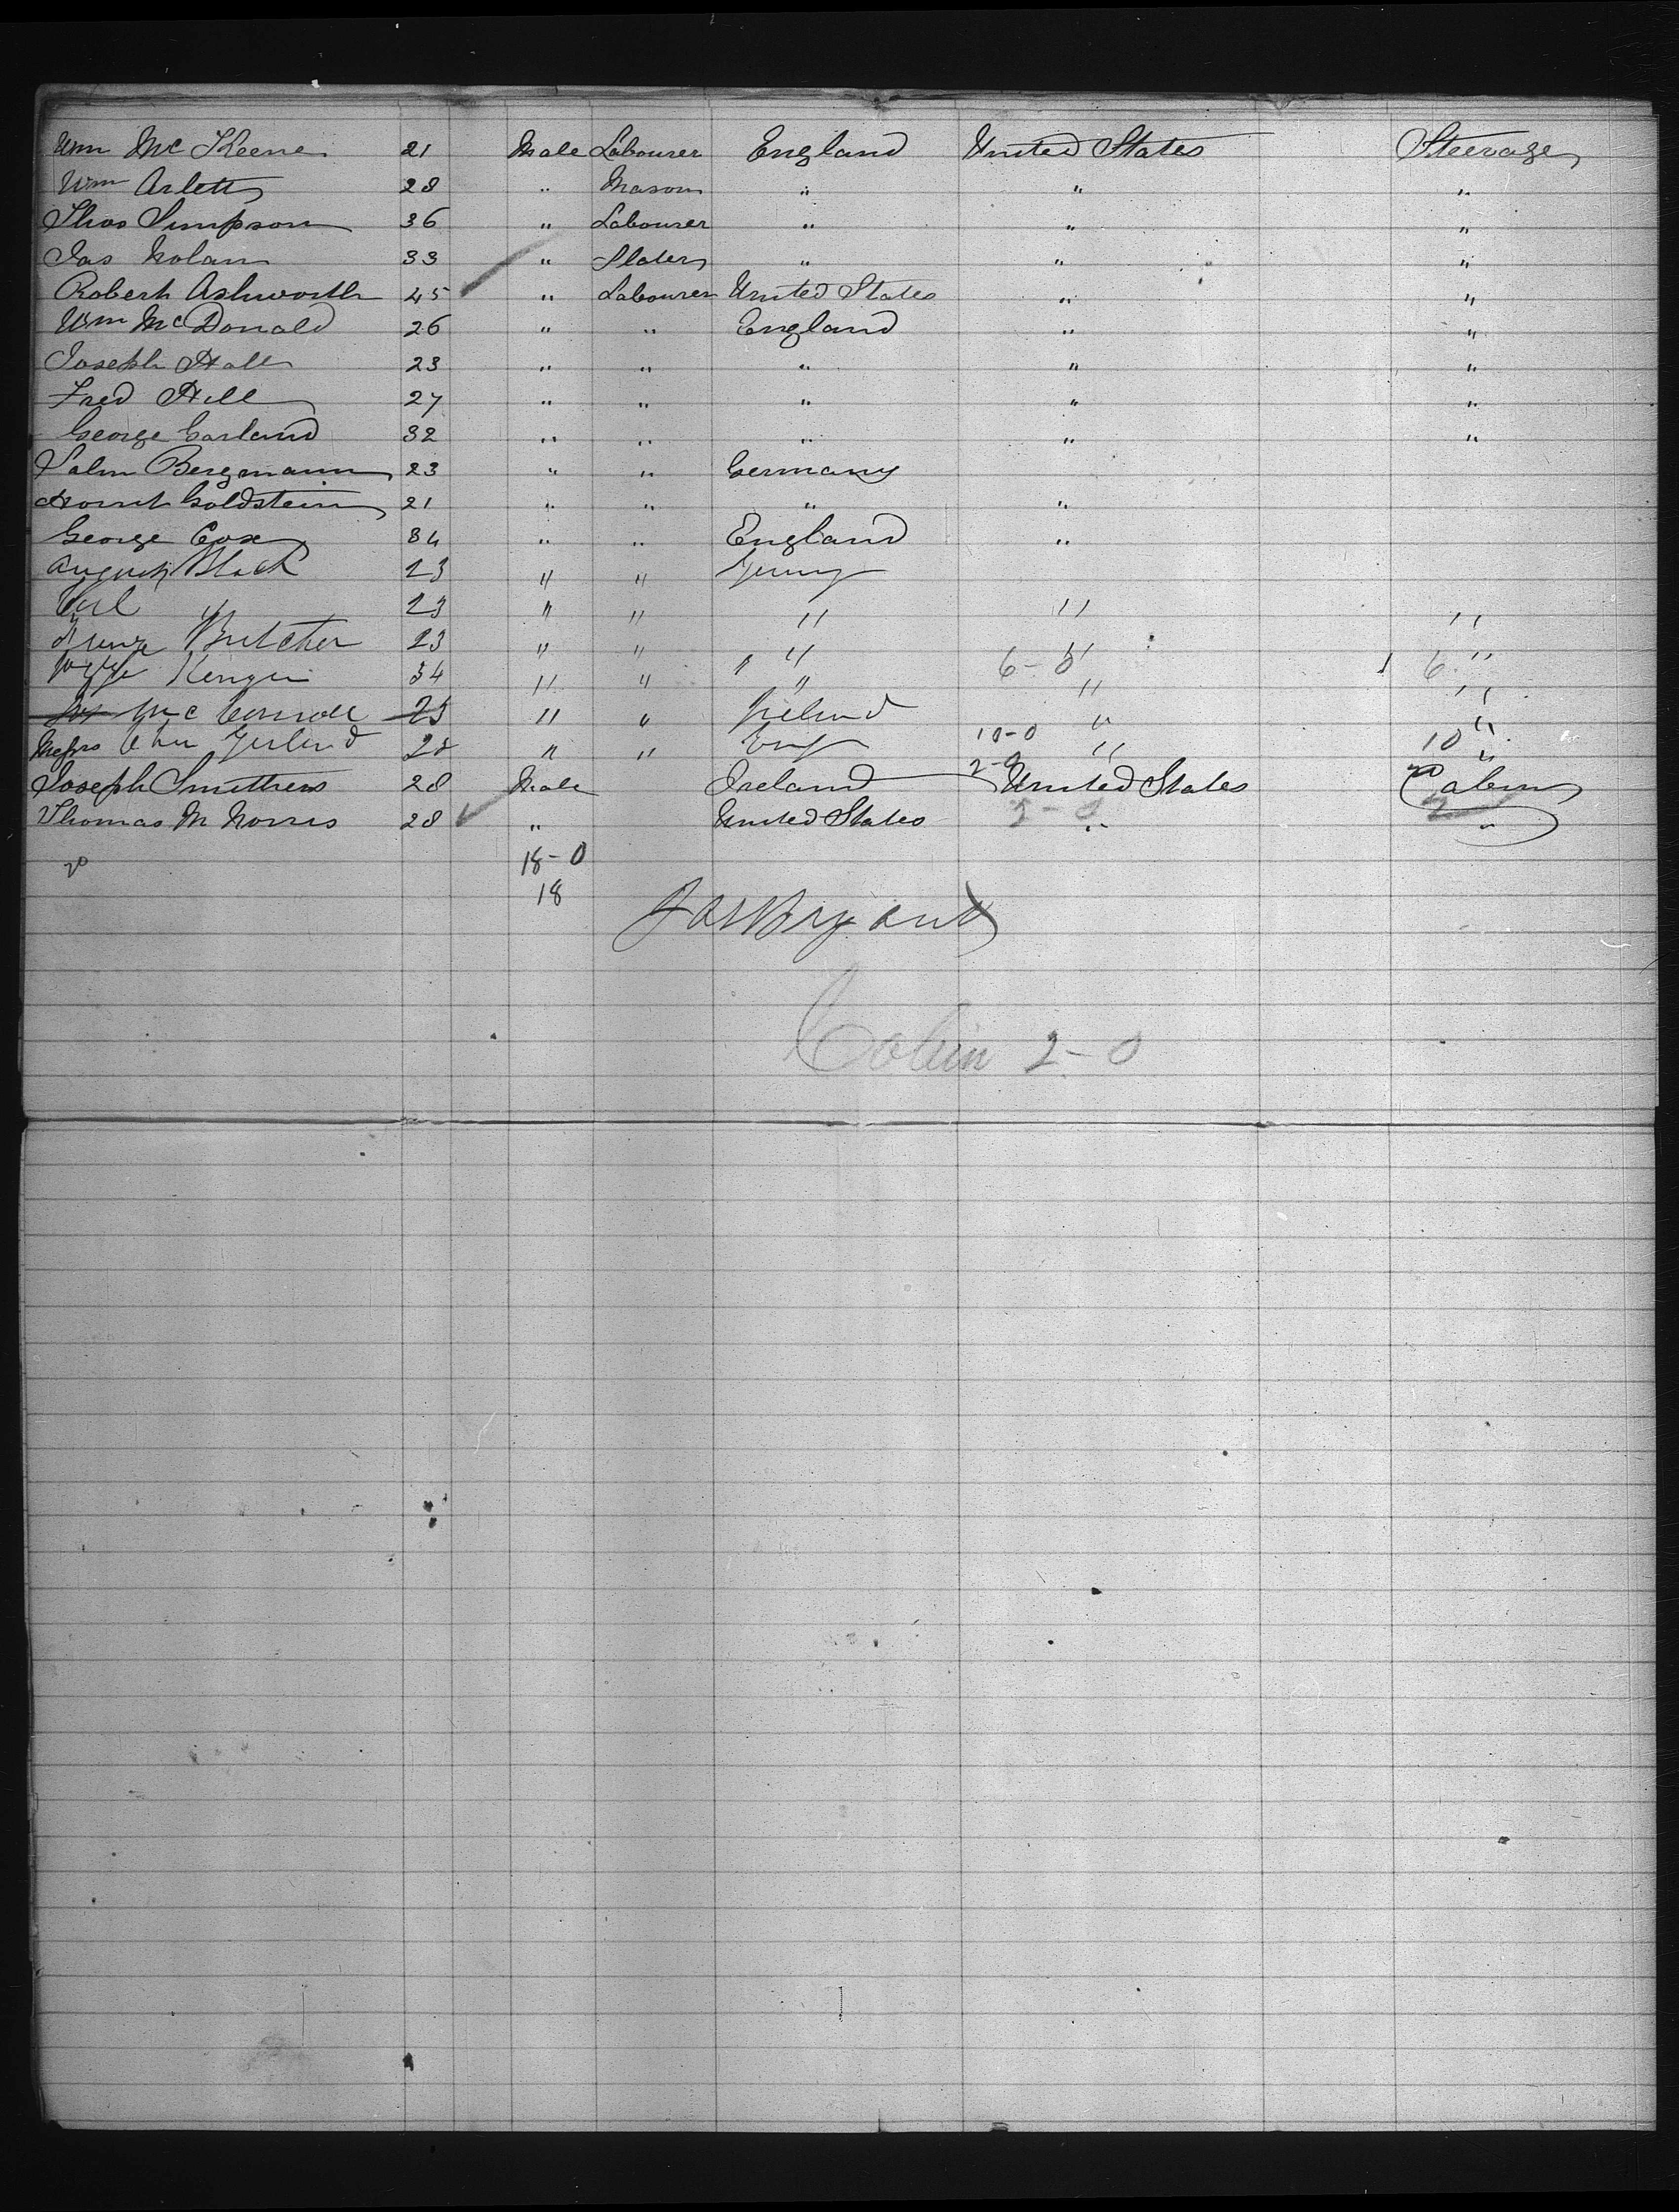 Wm McKeene 21 Male Labourer England United States Steerage
Wm Arlett 28 " Mason " " "
Thos Simpson 36 " Labourer " " "
Jas Nolan 33 " Slater " " "
Robert Ashworth 45 " Labourer United States " "
Wm McDonald 26 " " England " "
Joseph Hall 23 " " " " "
Fred Hill 27 " " " " "
George Garland 32 " " " " "
Salm Bergmann 23 " " Germany
Goldstein 21 " " " "
George Cox 34 " " England "
August Black 23 " "
" 23 " " " " "
Butcher 23 " " " " 6-0 " 6 "
34 " " " " "
Mc 23 " " Ireland " "
28 " " 10-0 " 10 "
2-0
Joseph Smithers 28 Male Ireland United States Cabin
Thomas M Norris 28 " United States 2-0 " 2 "
20 18-0
18
Jas Bryant
Cabin 2-0